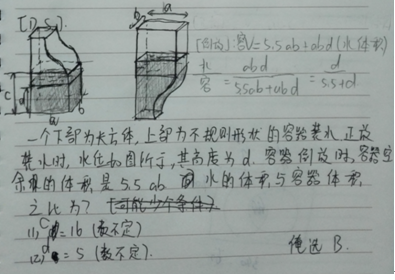 [D.S]:
b a
[倒放]:容V=5.5ab+abd(水体积)
水/容 = abd/5.5ab+abd = d/5.5+d
c d
a b
一个下部为长方体,上部为不规则形状的容器装水 正放
装水时,水位如图所示,其高度为d.容器倒放时,容器空
余的体积是5.5ab 问水的体积与容器体积
之比为? (可能少个条件)
(1) c=16 (数不定)
(2) d=5 (数不定).
俺选 B.